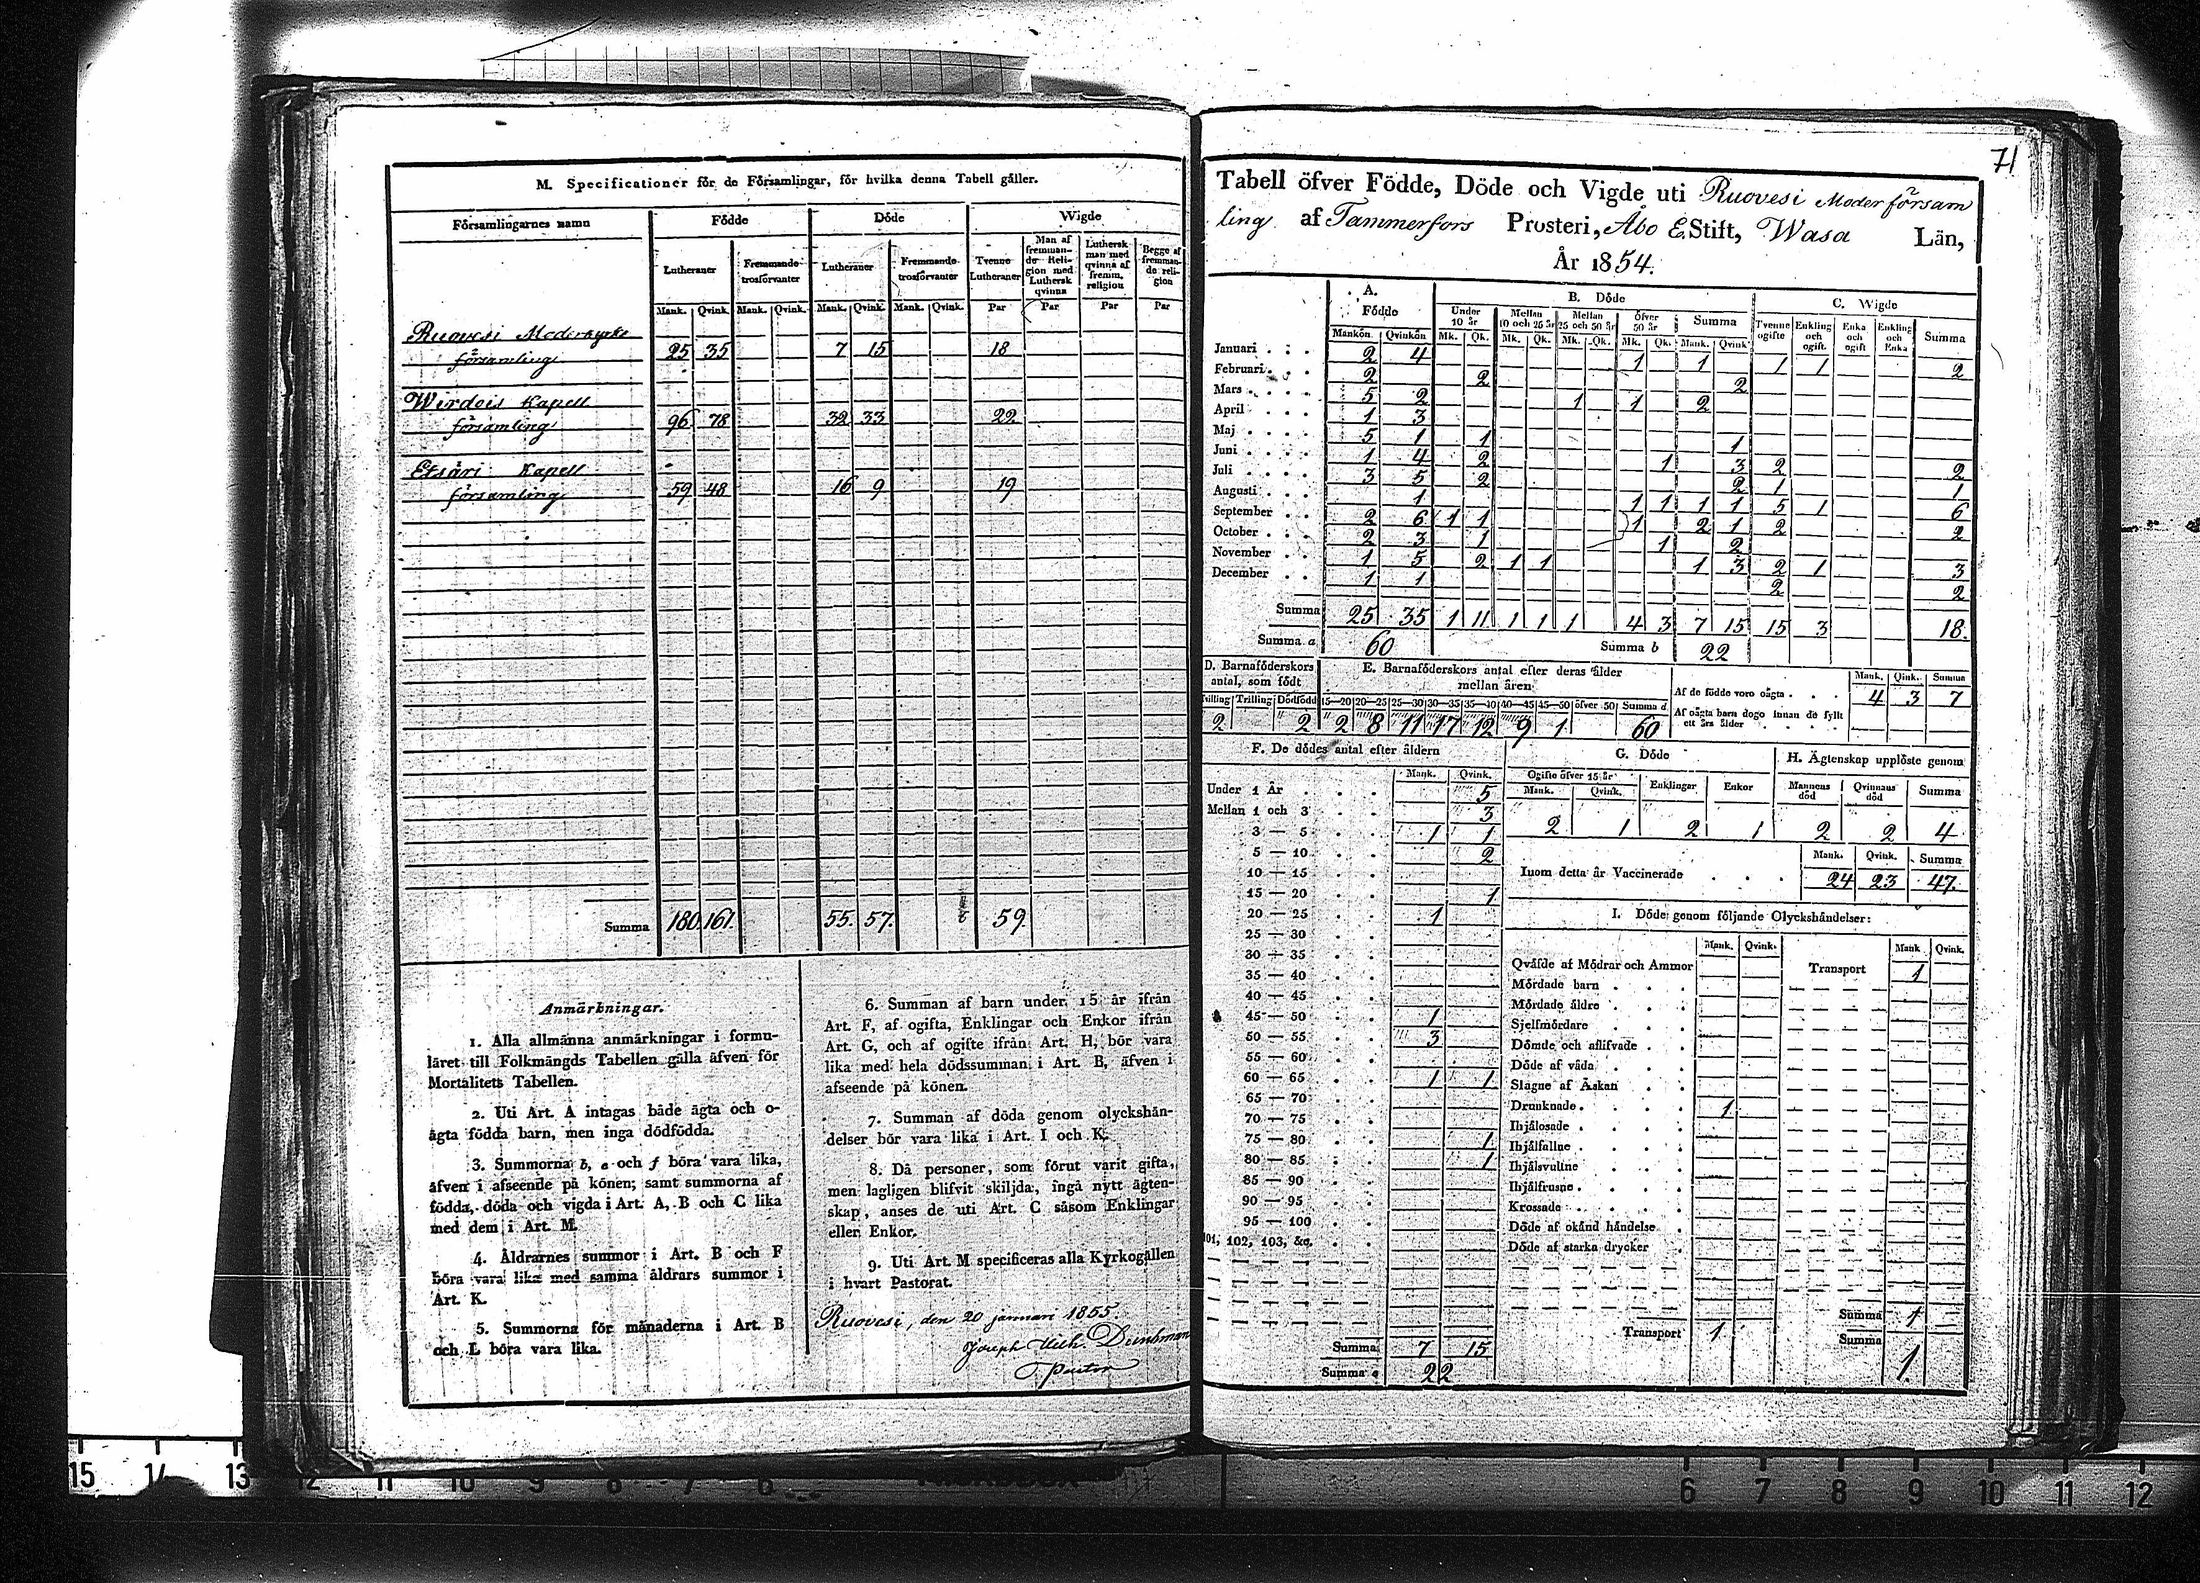 M. Specificationer för de Församlingar, för hvilka denna Tabell gäller.
Församlingarnes namn Födde Döde Wigde
Lutheraner Fremmande trosförvanter Lutheraner Fremmande trosförvanter Tvenne Lutheraner Man af fremmande Religion med Luthersk qvinna Luthersk man med qvinna af fremm. religion Begge af fremmande religion
Mank. Qvink. Mank. Qvink. Mank. Qvink. Mank. Qvink. Par Par Par Par
Ruovesi Moderkyrko
församling 25 35 7 15 18
Wirdois Kapell
församling 96 78 32 33 22
Etsäri Kapell
församling 59 48 16 9 19
Summa 180. 161. 55. 57. 59.
Anmärkningar.
1. Alla allmänna anmärkningar i formu-
läret till Folkmängds Tabellen gälla äfven för
Mortalitets Tabellen.
2. Uti Art. A intagas både ägta och o-
ägta födda barn, men inga dödfödda.
3. Summorna b, e och f böra vara lika,
äfven i afseende på könen; samt summorna af
födda, döda och vigda i Art. A, B och C lika
med dem i Art. M.
4. Åldrarnes summor i Art. B och F
böra vara lika med samma åldrars summor i
Art. K.
5. Summorna för månaderna i Art. B
och L böra vara lika.
6. Summan af barn under 15 år ifrån
Art. F, af ogifta, Enklingar och Enkor ifrån
Art. G, och af ogifte ifrån Art. H, bör vara
lika med hela dödssumman i Art. B, äfven i
afseende på könen.
7. Summan af döda genom olyckshän-
delser bör vara lika i Art. I och K.
8. Då personer, som förut varit gifta,
men lagligen blifvit skiljda, ingå nytt ägten-
skap, anses de uti Art. C såsom Enklingar
eller Enkor.
9. Uti Art. M specificeras alla Kyrkogällen
i hvart Pastorat.
Ruovesi, den 20 januari 1855
Joseph Wilh. Durchman
Pastor
71
Tabell öfver Födde, Döde och Vigde uti Ruovesi Moder försam
ling af Tammerfors Prosteri, Åbo E. Stift, Wasa Län,
År 1854.
A. Födde B. Döde C. Wigde
Under 10 år Mellan 10 och 25 år Mellan 25 och 50 år öfver 50 år Summa Tvenne ogifte Enkling och ogift. Enka och ogift Enkling och Enka Summa
Mankön Qvinkön Mk. Qk. Mk. Qk. Mk. Qk. Mk. Qk. Mank. Qvink
Januari 2 4 1 1 1 1 2
Februari 2 2 2
Mars 5 2 1 1 2
April 1 3
Maj 5 1 1 1
Juni 1 4 2 1 3 2 2
Juli 3 5 2 2 1 1
Augusti 1 1 1 1 1 5 1 6
September 2 6 1 1 1 2 1 2 2
October 2 3 1 1 2
November 1 5 2 1 1 1 3 2 1 3
December 1 1 2 2
Summa 25 35 1 11 1 1 1 4 3 7 15 15 3 18.
Summa a 60 Summa b 22
D. Barnaföderskors antal, som födt
Tvilling Trilling Dödfödd
2 2
E. Barnaföderskors antal efter deras ålder mellan åren
15—20 20—25 25—30 30—35 35—40 40—45 45—50 öfver 50 Summa d
2 8 11 17 12 9 1 60
Mank. Qink. Summa
Af de födde voro oägta 4 3 7
Af oägta barn dogo innan de fyllt ett års ålder
F. De dödes antal efter åldern
Mank. Qvink.
Under 1 År 5
Mellan 1 och 3 3
3 — 5 1 1
5 — 10 2
10 — 15
15 — 20 1
20 — 25 1
25 — 30
30 — 35
35 — 40
40 — 45
45 — 50 1
50 — 55 3
55 — 60
60 — 65 1 1
65 — 70
70 — 75
75 — 80 1
80 — 85 1
85 — 90
90 — 95
95 — 100
101, 102, 103, &c.
Summa 7 15
Summa e 22
G. Döde
Ogifte öfver 15 år Enklingar Enkor
Mank. Qvink.
2 1 2 1
H. Ägtenskap upplöste genom
Mannens död Qvinnans död Summa
2 2 4
Mank. Qvink. Summa
Inom detta år Vaccinerade 24 23 47.
I. Döde genom följande Olyckshändelser:
Mank. Qvink. Mank Qvink.
Qväfde af Mödrar och Ammor Transport 1
Mördade barn
Mördade äldre
Sjelfmördare
Dömde och aflifvade
Döde af våda
Slagne af Åskan
Drunknade 1
Ihjälosade
Ihjälfallne
Ihjälsvultne
Ihjälfrusne
Krossade
Döde af okänd händelse
Döde af starka drycker
Summa 1
Transport 1
Summa 1.